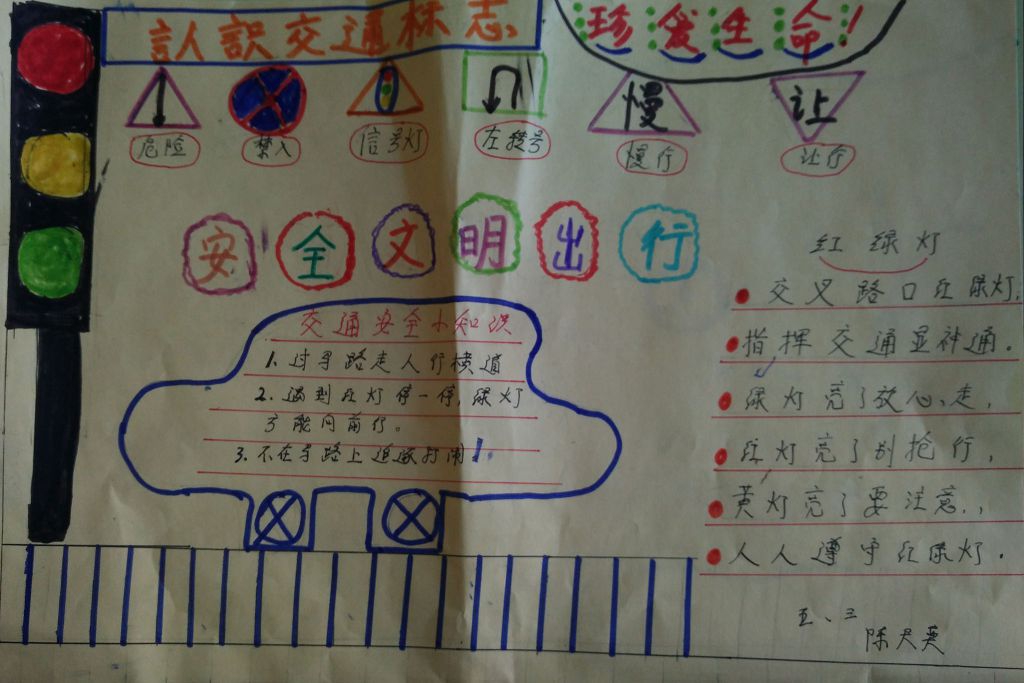 認識交通标志
珍爱生命!
慢
让
危险
禁入
信号灯
左拨号
慢行
让行
安全文明出行
交通安全小知识
1、过马路走人行横道
2、遇到红灯停一停,绿灯
才能向前行。
3、不在马路上追逐打闹!
红绿灯
交叉路口红绿灯,
指挥交通显神通。
绿灯亮了放心走,
红灯亮了别抢行,
黄灯亮了要注意,
人人遵守红绿灯.
五、三